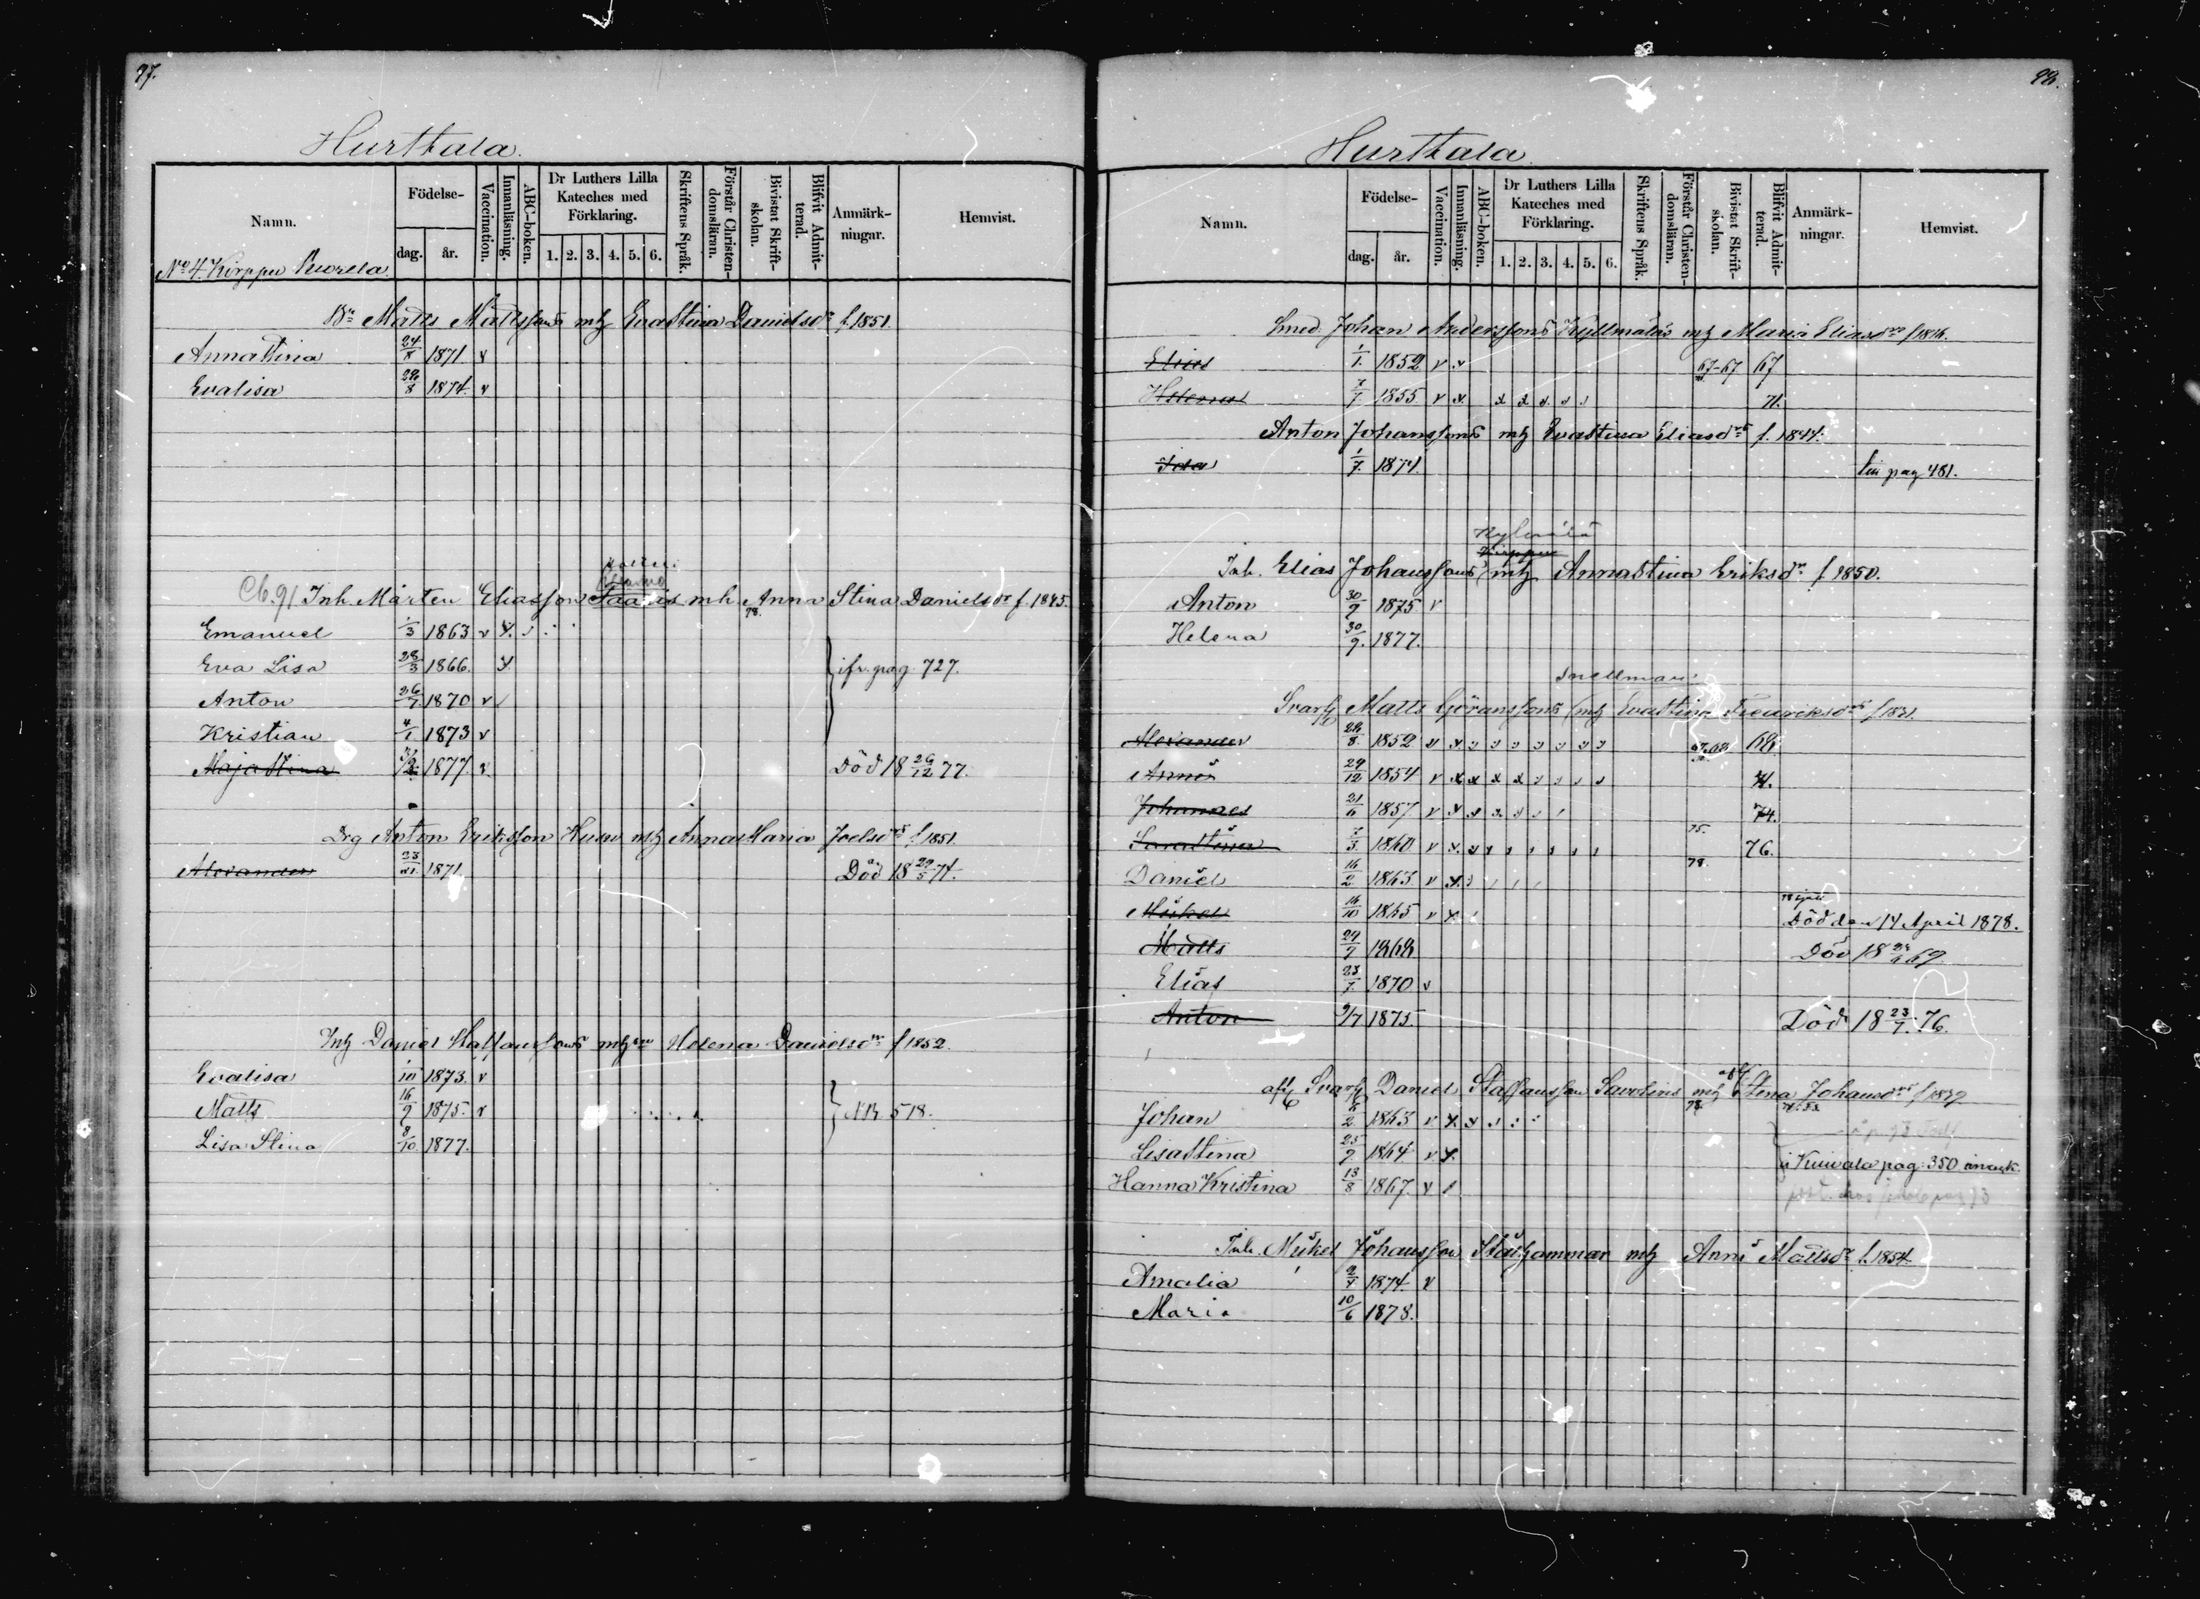 97.
Hurttala.
Namn.
Födelse-
dag.
år.
Vaccination.
Innanläsning.
ABC-boken.
Dr Luthers Lilla Kateches med Förklaring.
1. 2. 3. 4. 5. 6.
Skriftens Språk.
Förstår Christen-domsläran.
Bivistat Skrift-skolan.
Blifvit Admit-terad.
Anmärk-ningar.
Hemvist.
No 4 Kirppu
Matts Mattssons mh Evastina Danielsdr f. 1851.
Annastina 24/8 1871. v
Evalisa 1874. v
Inh. Mårten Eliasson mh. Anna Stina Danielsdr f. 1845.
78.
Emanuel 1/3 1863 v x
Eva Lisa 28/3 1866. x
ifr. pag. 727.
Anton 26/7 1870 v
Kristian 4/1 1873 v
Maja Stina 1877. v Död 18 26/12 77.
Drg Anton Eriksson mh Anna Maria Joelsdr f. 1851.
Alexander 1871 Död 18 29/5 74.
Inh Daniel Staffanssons mh Helena Danielsdr f 1852.
Evalisa 1/10 1873. v
Matts 16/9 1875. v 518.
Lisa Stina 8/10 1877.
98.
Hurttala
Namn.
Födelse-
dag.
år.
Vaccination.
Innanläsning.
ABC-boken.
Dr Luthers Lilla Kateches med Förklaring.
1. 2. 3. 4. 5. 6.
Skriftens Språk.
Förstår Christen-domsläran.
Bivistat Skrift-skolan.
Blifvit Admit-terad.
Anmärk-ningar.
Hemvist.
Smed. Johan Anderssons mh Maria Eliasdr f 1816.
Elias 1/1. 1852 v v 67-67 67
Helena 7/7 1855. v x x x x 71.
Anton Johanssons mh Evastina Eliasdr f. 1844.
Ida 1/7. 1874. pag 481.
Inh. Elias Johanssons mh Annastina Eriksdr f 1850.
Anton 30/9 1875 v
Helena 30/9. 1877.
Snellman
Matts Göranssons mh Evastina Fredriksdr f 1831.
Alexander 1852 68.
Anna 29/12 1854 v x x x x
Johannes 21/6 1857 v x x x 74.
75.
Sarastina 7/3 1860 v x x 76.
78.
Daniel 16/2 1863 v x
Mikael 16/10 1865 v x
Död den 14 April 1878.
Matts 29/9 1868 Död 18 69.
Elias 23/7. 1870 v
Anton 9/7 1875. Död 18 23/7. 76.
Daniel Staffansson mh Stena Johansdr f 1839
78.
Johan 1863 v x x
Lisastina 25/9 1864 v x.
i Kuivala pag. 350
Hanna Kristina 13/8 1867. v
Inh. Mikel Johansson Stålhammar mh Anna Mattsdr f. 1854.
Amalia 1874. v
Maria 10/6 1878.